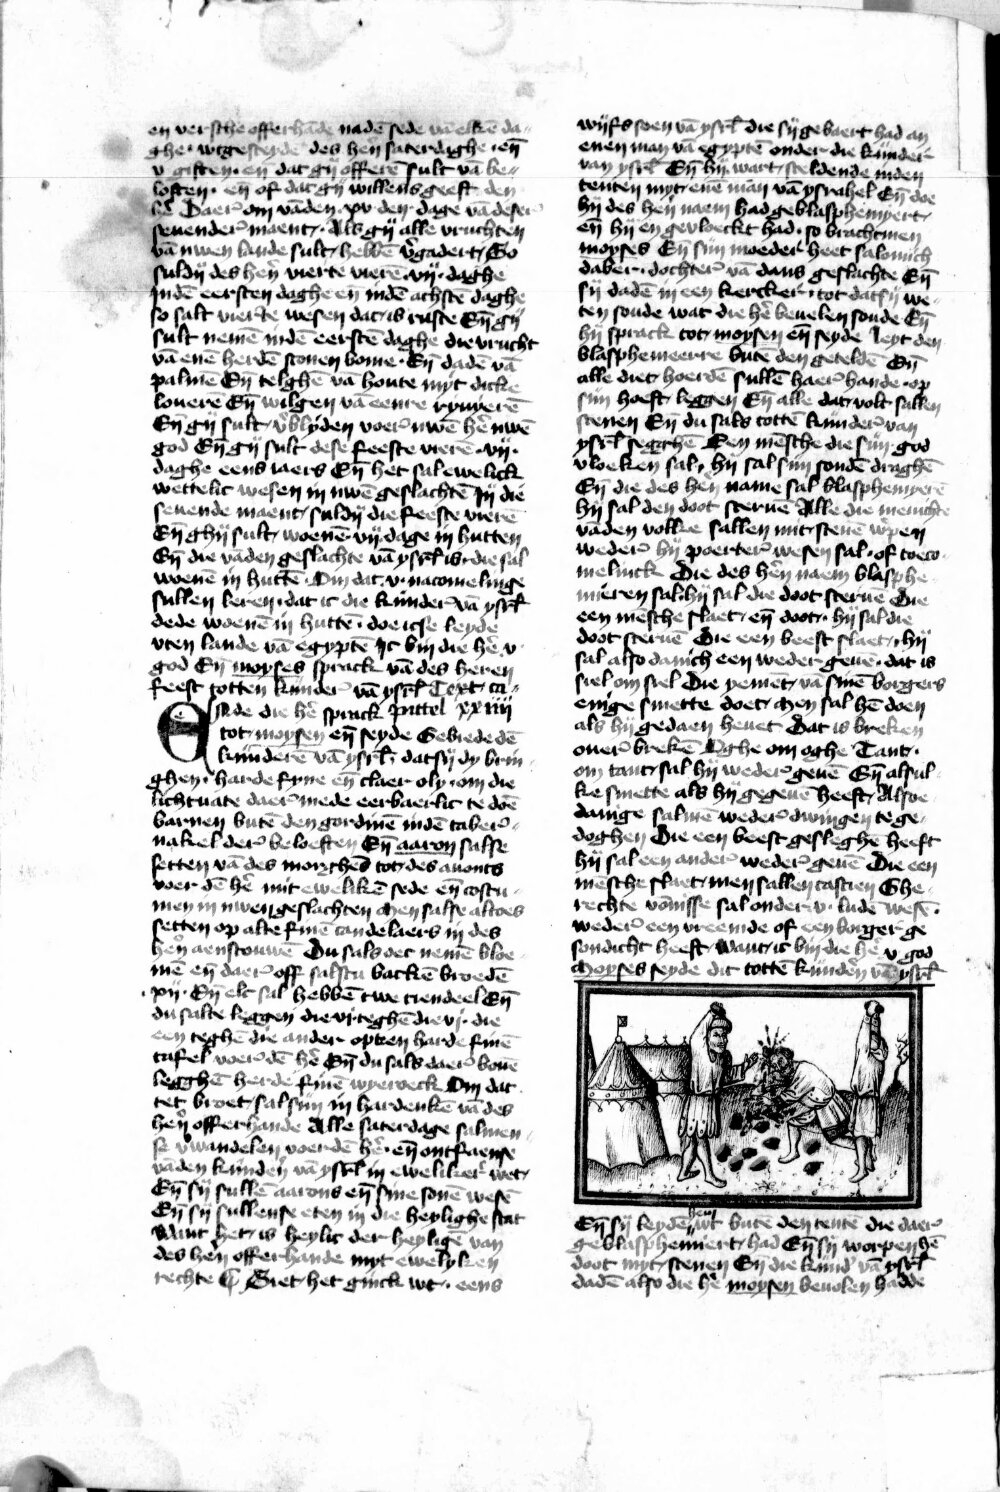 en versche offerhāde nadē sede vā elkē da-
ghe · wtgesteyde des hen̄ saterdaghe · eñ
v giften · en dat gij offerē sult vā be-
loften · en of dat gij willens geeft den
hē Daer om vāden · xv · den · dage vā deser
seuender maent · Als gij alle vruchten
vā uwen lande sult hebbē v̄gadert So
suldij des hen̄ vierte vierē · vij · daghe
Indē eersten daghe eñ indē achstē daghe
so salt vierte wesen dat is ruste Eñ gij
sult nemē indē eerstē daghe die vrucht
vā enē herdē sconen bome · Eñ dadē vā
palmē Eñ telghē vā houte myt dicke
louerē Eñ wilgen vā eenre ryuyerē
Eñ gij sult v̄blyden voer uwē hē uwē
god Eñ gij sult dese feeste vierē · vij ·
daghe eens iaers Eñ het sal ewelick
wettelic wesen in uwē geslachtē In die
seuende maent suldij die feeste vierē
Eñ ghij sult woenē · vij · dage in hutten
Eñ die vāden geslachte vā ysrl̄ is · die sal
woenē in huttē · Om dat · v · nacomelinge
sullen leren · dat ic die kinder vā ysrl̄
dede woenē in hutte · doe icse leyde
vten lande vā egyptē Ic bin die hē v
god Eñ moyses sprack vā des heren
feest totten kinder vā ysrl̄ Text ca-
Ende die hē sprack pittel xxiiij
tot moysen eñ seyde Gebiede dē
kinderē vā ysrl̄ datsij dy brin
ghen · harde fyne eñ claer oly · om die
lichtuate daer mede eerbaerlic te doē
barnen butē den gordinē indē taber-
nakel der beloeften Eñ aaron salse
setten vā des morghēs tot des auonts
voer dē hē mit ewelikē sede eñ costu-
men in uwen geslachten Men salse altoes
setten op alte finē candelaers in des
hen̄ aenscouwē Du sals oec nemē bloe-
mē eñ daer off salstu backē broedē
xij · Eñ elc sal hebbē twe tiendeel Eñ
du salte leggen die vi · teghē die vj · die
een teghē die ander opten harde finē
tafel voer dē hē Eñ du sals daer bouē
legghē herde finē wyeroeck Om dat
tet broet sal sijn in hardenkē vā des
hen̄ offerhande Alle saterdage salmen
se v̄wandelen voerdē hē · eñ ontfaense
vāden kinden̄ vā ysrl̄ in eweliker wet
Eñ sij sullē aarons eñ sine sonē wesē
Eñ sij sullense eten in die heylighe stat
Want het is heylic der heylige van
des hen̄ offerhande myt ewelyken
rechte ¶ Siet het ginck wt · eens
wijfs soen vā ysrl̄ die sij gebaert had an
enen man vā egyptē onder die kinder
van ysrl̄ Eñ hij wart sceldende inden
tenten myt enē man vā ysrahel Eñ doe
hij des hen̄ naem had geblasphemyert
eñ hij en gevloeckt had · so brachtmen
moyses Eñ sijn moeder heet salomich
daber · dochter vā dans geslachte Eñ
sij dadē in een kercker · tot datsij we-
ten soude wat die hē beuelen soude Eñ
hij sprack tot moysen eñ seyde leyt den
blasphemeerre bute den geteldē Eñ
alle diet hoerdē sullē haer hande · op
sijn hoeft leggen Eñ alle dat volt sallen
stenen Eñ du sals tottē kinder van
ysrl̄ segghē Een mēsche die sijn god
vloeken sal · hij sal sijn sondē draghē
Eñ die des hen̄ name sal blasphemyerē
hij sal den doot steruē Alle die menichte
vāden volke sallen mit stenē w̄pen
weder hij poerter wesen sal · of toeco-
melinck Die des hen̄ naem blasphe-
mieren sal · hij sal die doot sterue Die
een mēsche slaet eñ doot · hij sal die
doot steruē Die een beest slaet · hij
sal also danich een weder geuē · dat is
siel om siel Die yemēt vā sinē borgers
enige smette doet men sal hē doen
als hij gedaen heuet Dat is breken
ouer brekē Oghe om oghe Tant ·
om tant sal hij weder geuē Eñ alsul-
ke smette als hij gegeuē heeft Alsoe-
danige salmē weder dwingen te ge-
doghen Die een beest gesleghē heeft
hij sal een ander weder geuē Die een
mēsche slaet men sallen castien Ghe-
rechte vōnisse sal onder · v · ludē wesē ·
weder een vreemde of een borger ge
sondicht heeft Want ic bin die hē v god
Moyses seyde dit tottē kinden̄ vā ysrl̄
hem
Eñ sij leydē wt butē den tentē die daer
geblasphemiert had Eñ sij worpen hē
doot myt stenen Eñ die kind' vā ysrl̄
dadē also die hē moysen beuolen hadde